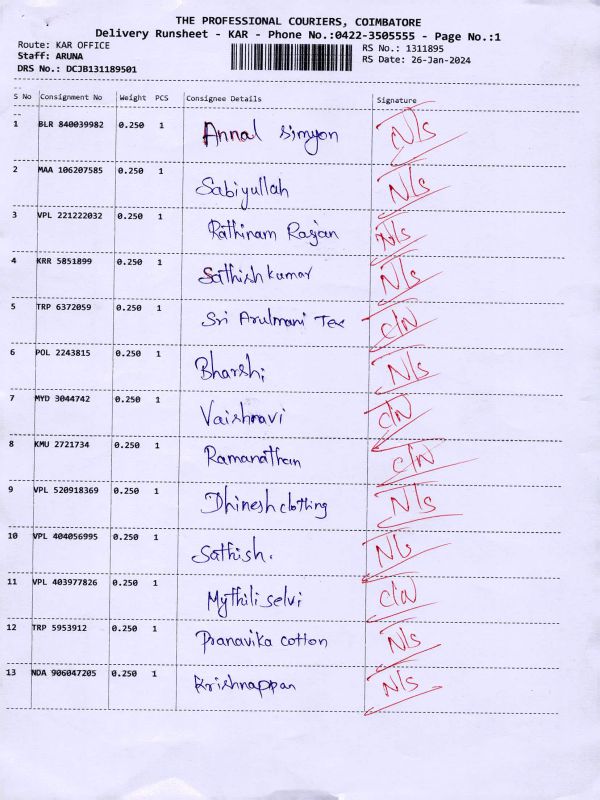 THE PROFESSIONAL COURIERS, COIMBATORE
Delivery Runsheet - KAR - Phone No.:0422-3505555 - Page No.:1
Route: KAR OFFICE RS No.: 1311895
Staff: ARUNA RS Date: 26-Jan-2024
DRS No.: DCJB131189501
S No Consignment No Weight PCS Consignee Details Signature
1 BLR 840039982 0.250 1 Annal Simyon N/s
2 MAA 106207585 0.250 1 Sabiyullah N/s
3 VPL 221222032 0.250 1 Rathinam Rajan N/s
4 KRR 5851899 0.250 1 Sathish kumar N/s
5 TRP 6372059 0.250 1 Sri Arulmani Tex C/N
6 POL 2243815 0.250 1 Bharshi N/s
7 MYD 3044742 0.250 1 Vaishnavi C/N
8 KMU 2721734 0.250 1 Ramanathan C/N
9 VPL 520918369 0.250 1 Dhinesh clothing N/s
10 VPL 404056995 0.250 1 Sathish. N/s
11 VPL 403977826 0.250 1 Mythili selvi C/N
12 TRP 5953912 0.250 1 Pranavika cotton N/s
13 NDA 906047205 0.250 1 Krishnappan N/s